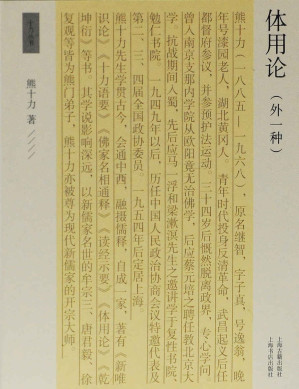 体用论
（外一种）
熊十力 著
熊十力（一八八五—一九六八），原名继智，字子真，号逸翁，晚
年号漆园老人，湖北黄冈人。青年时代投身反清革命，武昌起义后任
都督府参议，并参预护法运动。三十四岁后慨然脱离政界，专心学问，
曾入南京支那内学院从欧阳竟无治佛学，后应蔡元培之聘任教北京大
学。抗战期间入蜀，先后应马一浮和梁漱溟先生之邀讲学于复性书院、
勉仁书院。一九四九年以后，历任中国人民政治协商会议特邀代表及
第二、三、四届全国政协委员。一九五四年后定居上海。
熊十力先生学贯古今，会通中西，融摄儒释，自成一家，著有《新唯
识论》《十力语要》《佛家名相通释》《读经示要》《体用论》《乾
坤衍》等书，其学说影响深远，以新儒家名世的牟宗三、唐君毅、徐
复观等皆为熊门弟子，熊十力亦被尊为现代新儒家的开宗大师。
上海古籍出版社
上海书店出版社